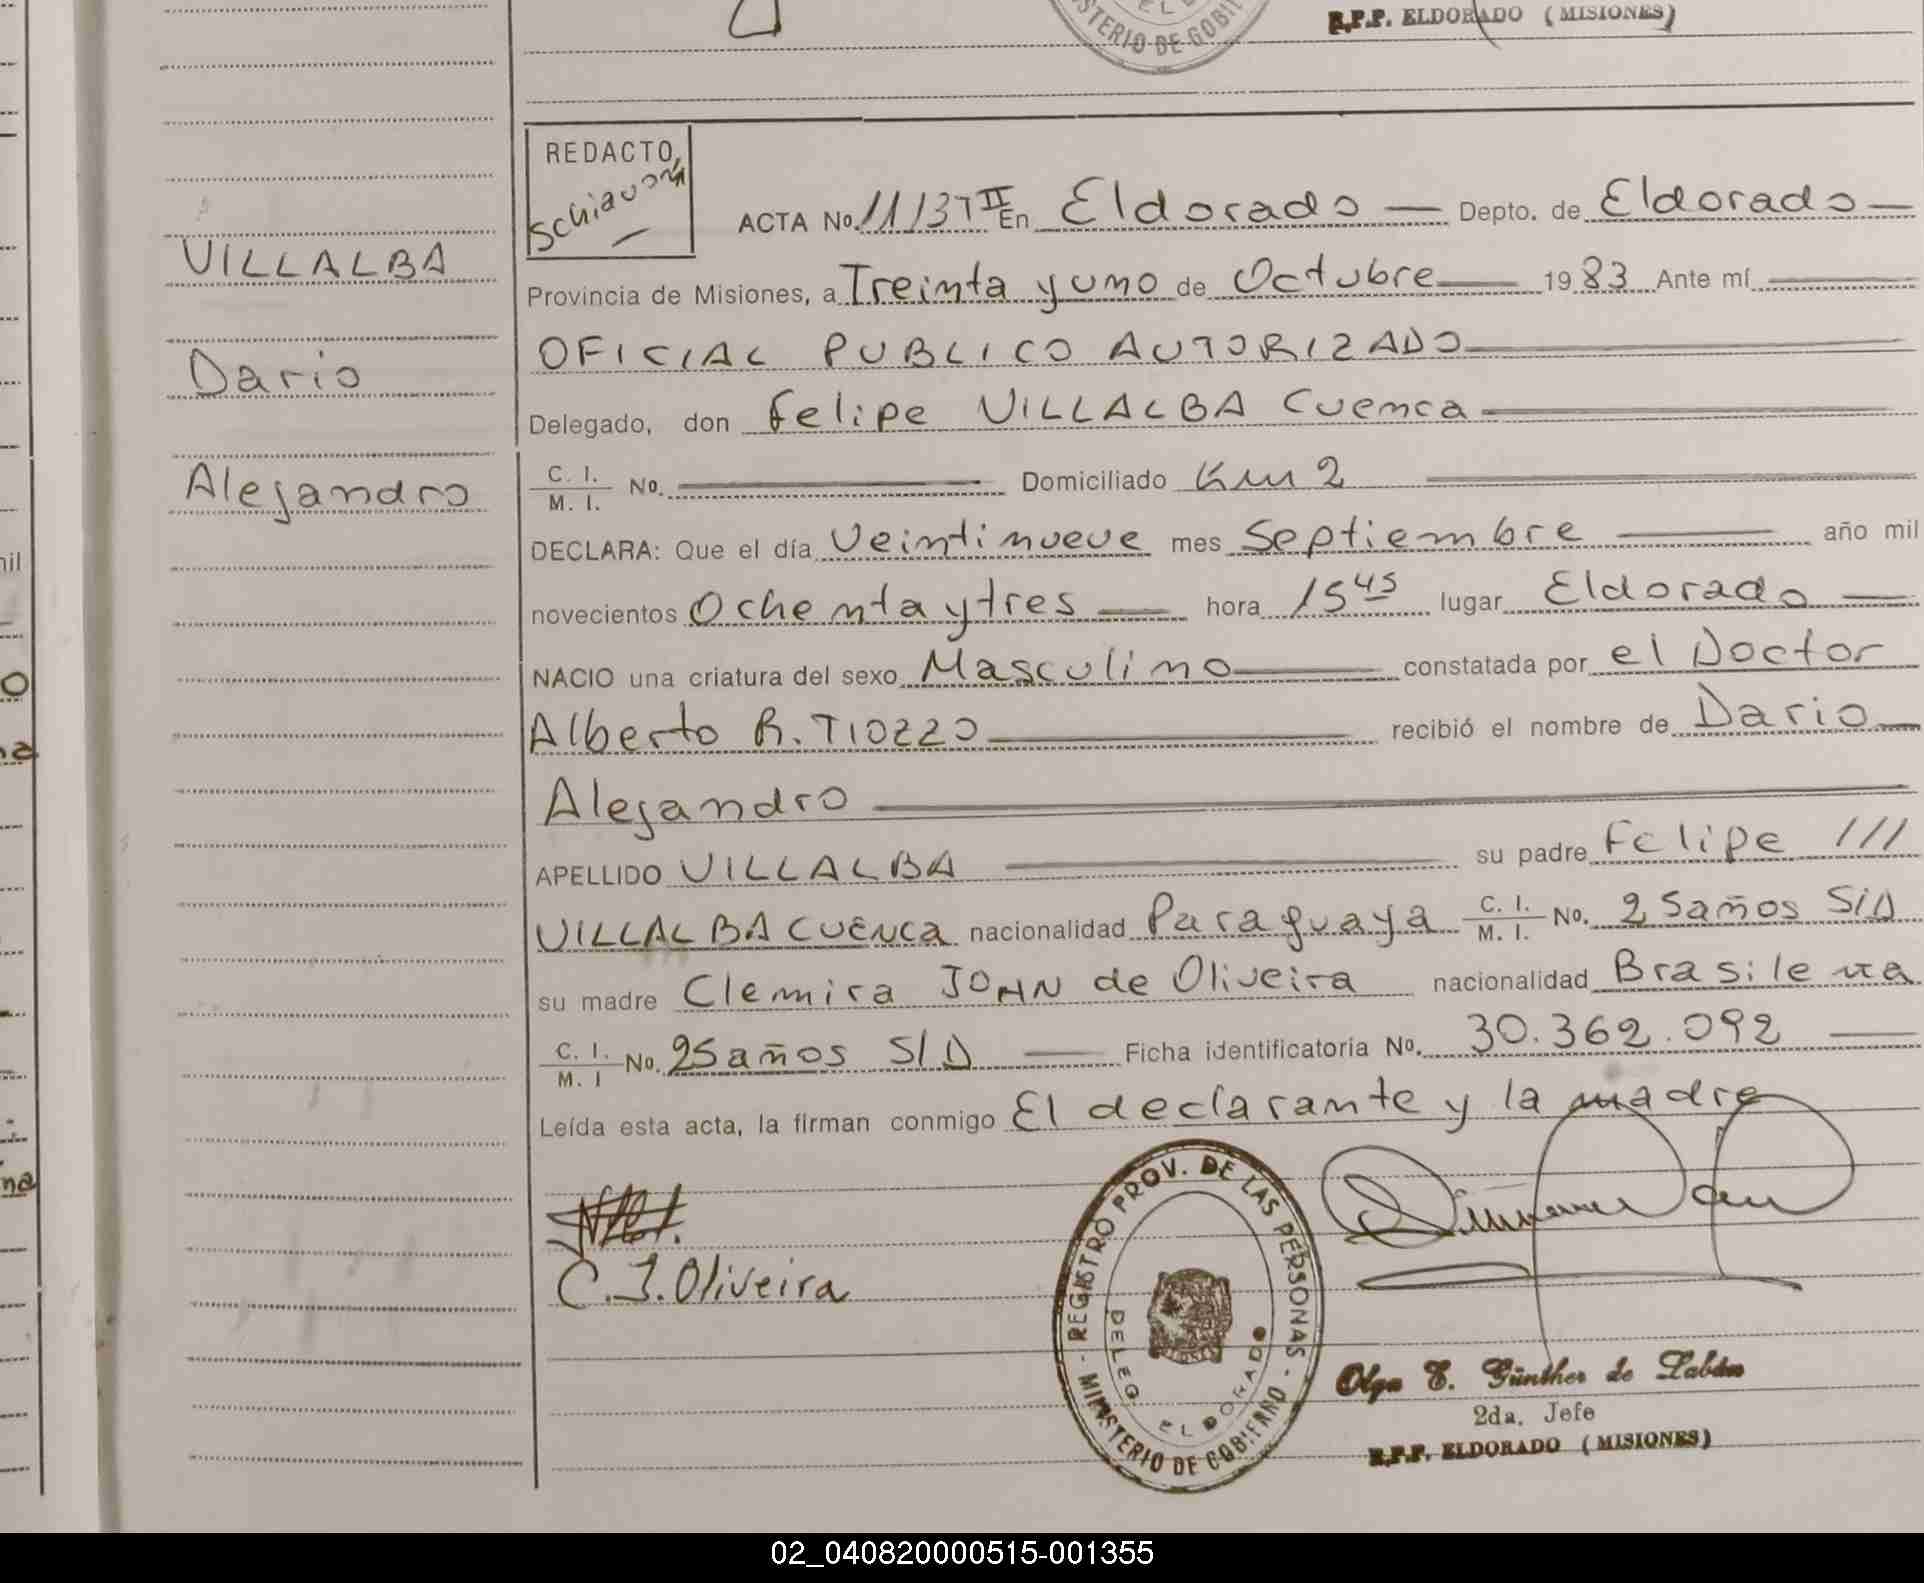 STERIO DE GOBI
R.P.P. ELDORADO (MISIONES)
REDACTO,
Schiavoni
ACTA No. 11/37 II En Eldorado — Depto. de Eldorado —
VILLALBA
Provincia de Misiones, a Treinta y uno de Octubre — 1983 Ante mí —
Dario
OFICIAL PUBLICO AUTORIZADO —
Delegado, don Felipe VILLALBA Cuenca —
Alejandro
C. I. / M. I. No. — Domiciliado Km 2 —
DECLARA: Que el día Veintinueve mes Septiembre — año mil
novecientos Ochenta y tres — hora 15 45 lugar Eldorado —
NACIO una criatura del sexo Masculino — constatada por el Doctor
Alberto R. TIOZZO — recibió el nombre de Dario —
Alejandro —
APELLIDO VILLALBA — su padre Felipe ///
VILLALBA CUENCA nacionalidad Paraguaya C. I. / M. I. No. 25 años S/D
su madre Clemira JOHN de Oliveira nacionalidad Brasilena
C. I. / M. I No. 25 años S/D — Ficha identificatoria No. 30.362.092 —
Leída esta acta, la firman conmigo El declarante y la madre
C. J. Oliveira
REGISTRO PROV. DE LAS PERSONAS - MINISTERIO DE GOBIERNO -
DELEG. ELDORADO
Olga E. Günther de Labán
2da. Jefe
R.P.P. ELDORADO (MISIONES)
nil
o
na
na
02_040820000515-001355